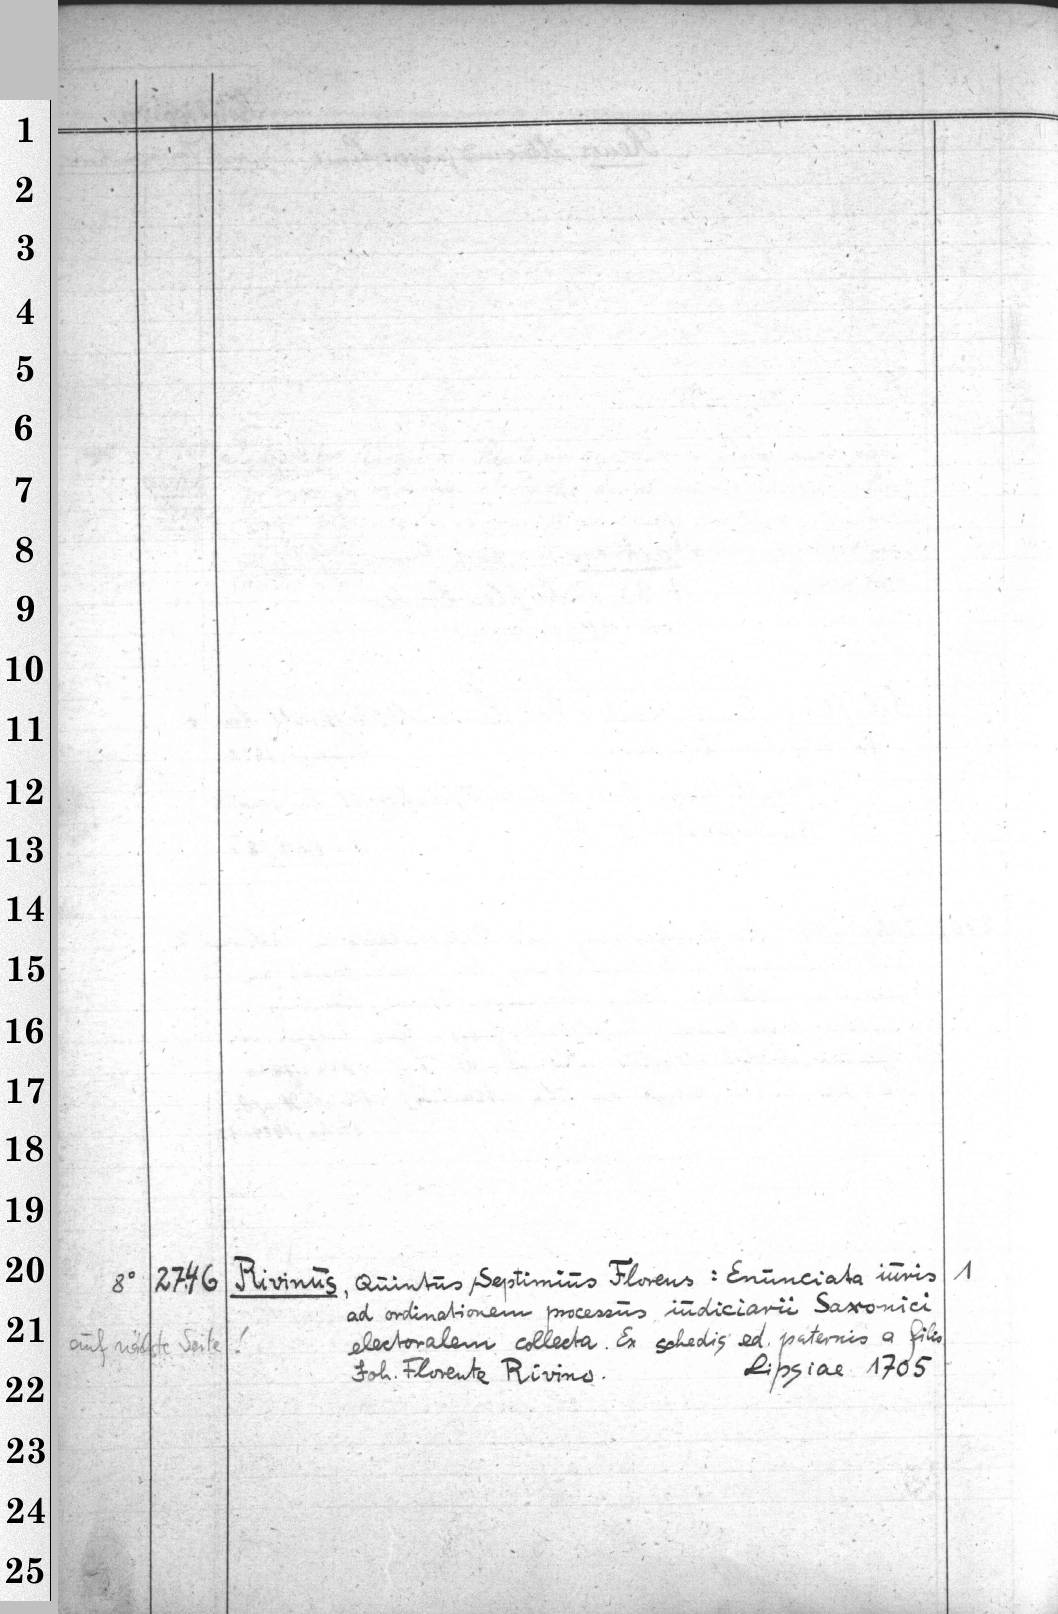 1
2
3
4
5
6
7
8
9
10
11
12
13
14
15
16
17
18
19
20
21
22
23
24
25
8° 2746 Rivinus, Quintus Septimius Florens : Enunciata iuris 1
ad ordinationem processus iudiciarii Saxonici
electoralem collecta. Ex schedis ed. paternis a filio
auf nächste Seite!
Joh. Florente Rivino. Lipsiae 1705